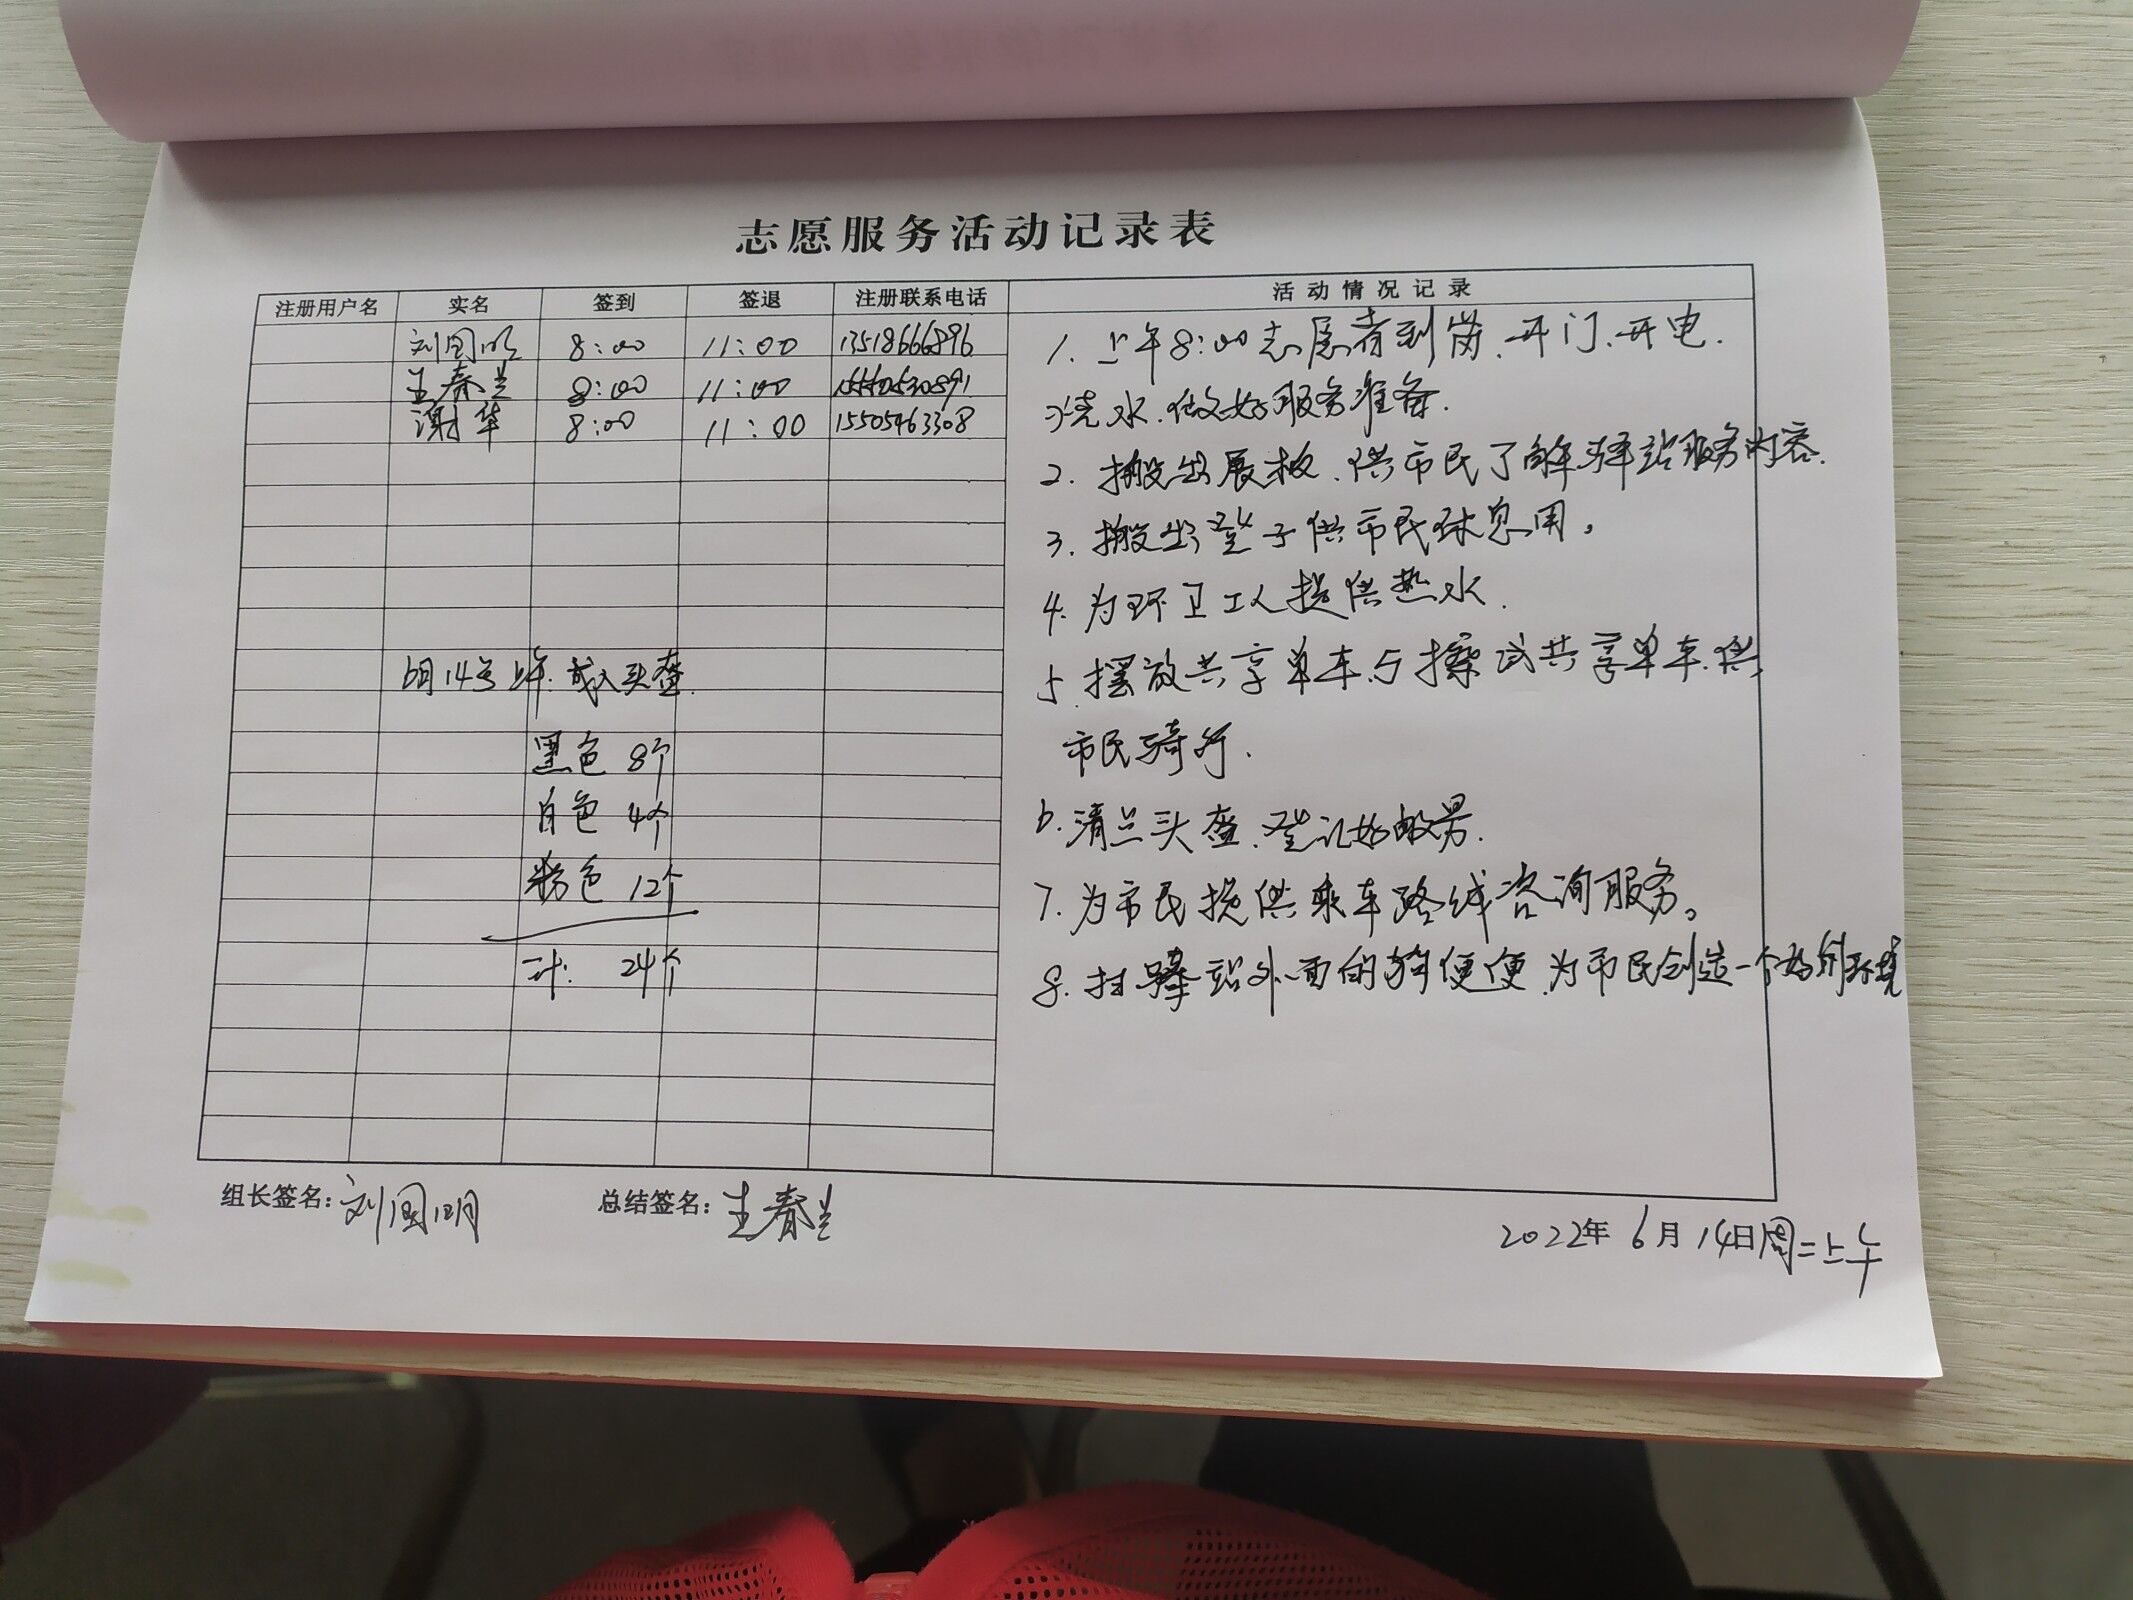 志愿服务活动记录表
注册用户名 实名 签到 签退 注册联系电话 活动情况记录
刘国明 8:00 11:00 13518666896
王春兰 8:00 11:00
谢华 8:00 11:00 15505463308
6月14号上午 头盔.
黑色 8个
白色 4个
粉色 12个
计: 24个
1. 上午8:00志愿者到岗、开门、开电.
烧水.做好服务准备.
2. 搬出展板.供市民了解驿站服务内容.
3. 搬出凳子供市民休息用。
4. 为环卫工人提供热水.
5. 摆放共享单车与擦试共享单车.供
市民骑行.
6. 清点头盔.登记好.
7. 为市民提供乘车路线咨询服务。
8. 扫驿站外面的狗便便.为市民创造一个好的环境
组长签名: 刘国明 总结签名: 王春兰
2022年 6月 14日周二上午